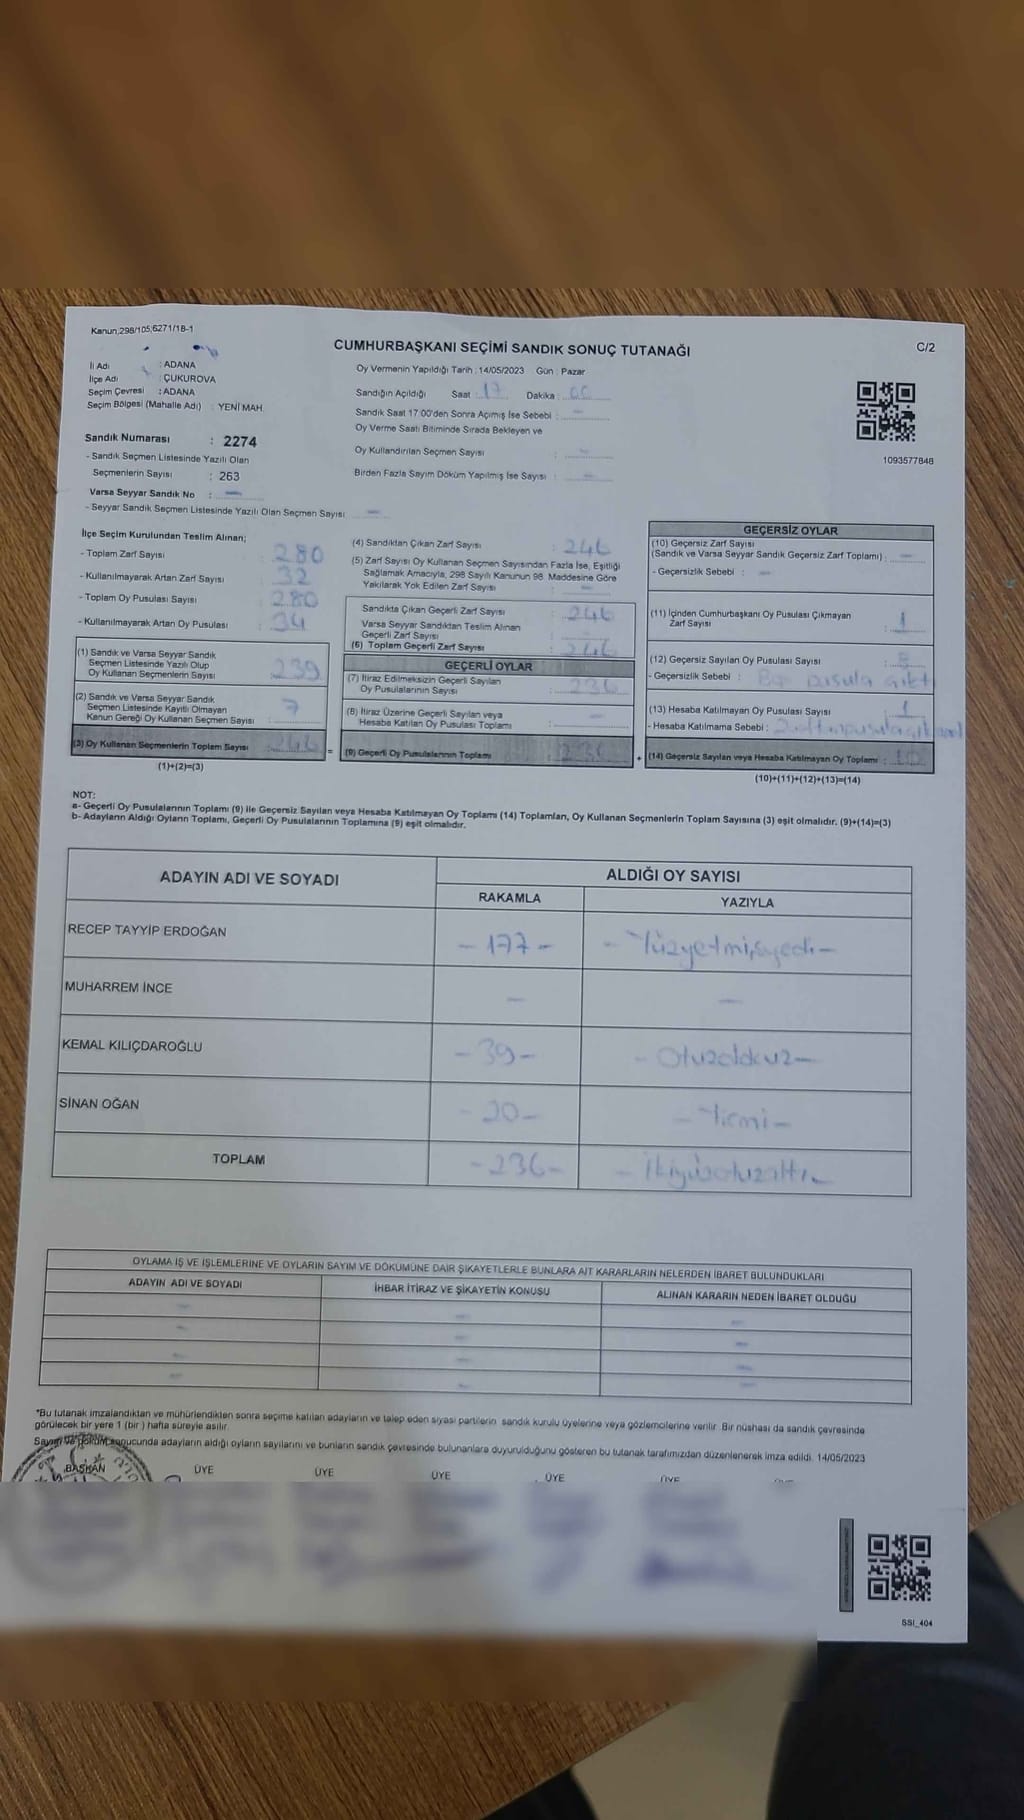 Kanun,298/105;6271/18-1
CUMHURBAŞKANI SEÇİMİ SANDIK SONUÇ TUTANAĞI
C/2
İli Adı : ADANA
İlçe Adı : ÇUKUROVA
Seçim Çevresi : ADANA
Seçim Bölgesi (Mahalle Adı) : YENİ MAH.
Sandık Numarası : 2274
- Sandık Seçmen Listesinde Yazılı Olan
Seçmenlerin Sayısı : 263
Varsa Seyyar Sandık No : —
- Seyyar Sandık Seçmen Listesinde Yazılı Olan Seçmen Sayısı : —
Oy Vermenin Yapıldığı Tarih : 14/05/2023 Gün : Pazar
Sandığın Açıldığı Saat : 17 Dakika :
Sandık Saat 17:00'den Sonra Açımış İse Sebebi : —
Oy Verme Saati Bitiminde Sırada Bekleyen ve
Oy Kullandırılan Seçmen Sayısı : —
Birden Fazla Sayım Döküm Yapılmış İse Sayısı : —
1093577848
İlçe Seçim Kurulundan Teslim Alınan;
- Toplam Zarf Sayısı : 280
- Kullanılmayarak Artan Zarf Sayısı : 32
- Toplam Oy Pusulası Sayısı : 280
- Kullanılmayarak Artan Oy Pusulası : 34
(1) Sandık ve Varsa Seyyar Sandık
Seçmen Listesinde Yazılı Olup
Oy Kullanan Seçmenlerin Sayısı : 239
(2) Sandık ve Varsa Seyyar Sandık
Seçmen Listesinde Kayıtlı Olmayan
Kanun Gereği Oy Kullanan Seçmen Sayısı : 7
(3) Oy Kullanan Seçmenlerin Toplam Sayısı : 246
(1)+(2)=(3)
(4) Sandıktan Çıkan Zarf Sayısı : 246
(5) Zarf Sayısı Oy Kullanan Seçmen Sayısından Fazla İse, Eşitliği
Sağlamak Amacıyla, 298 Sayılı Kanunun 98. Maddesine Göre
Yakılarak Yok Edilen Zarf Sayısı : —
Sandıkta Çıkan Geçerli Zarf Sayısı : 246
Varsa Seyyar Sandıktan Teslim Alınan
Geçerli Zarf Sayısı : —
(6) Toplam Geçerli Zarf Sayısı : 246
GEÇERLİ OYLAR
(7) İtiraz Edilmeksizin Geçerli Sayılan
Oy Pusulalarının Sayısı : 236
(8) İtiraz Üzerine Geçerli Sayılan veya
Hesaba Katılan Oy Pusulası Toplamı : —
(9) Geçerli Oy Pusulalarının Toplamı : 236
GEÇERSİZ OYLAR
(10) Geçersiz Zarf Sayısı
(Sandık ve Varsa Seyyar Sandık Geçersiz Zarf Toplamı) : —
- Geçersizlik Sebebi : —
(11) İçinden Cumhurbaşkanı Oy Pusulası Çıkmayan
Zarf Sayısı : 1
(12) Geçersiz Sayılan Oy Pusulası Sayısı :
- Geçersizlik Sebebi : pusula
(13) Hesaba Katılmayan Oy Pusulası Sayısı : 1
- Hesaba Katılmama Sebebi :
(14) Geçersiz Sayılan veya Hesaba Katılmayan Oy Toplamı : 10
(10)+(11)+(12)+(13)=(14)
NOT:
a- Geçerli Oy Pusulalarının Toplamı (9) ile Geçersiz Sayılan veya Hesaba Katılmayan Oy Toplamı (14) Toplamları, Oy Kullanan Seçmenlerin Toplam Sayısına (3) eşit olmalıdır. (9)+(14)=(3)
b- Adayların Aldığı Oyların Toplamı, Geçerli Oy Pusulalarının Toplamına (9) eşit olmalıdır.
ADAYIN ADI VE SOYADI
ALDIĞI OY SAYISI
RAKAMLA YAZIYLA
RECEP TAYYİP ERDOĞAN - 177 - - Yüzyetmişyedi -
MUHARREM İNCE — —
KEMAL KILIÇDAROĞLU - 39 - - Otuzdokuz -
SİNAN OĞAN - 20 - - Yirmi -
TOPLAM - 236 - - İkiyüzotuzaltı -
OYLAMA İŞ VE İŞLEMLERİNE VE OYLARIN SAYIM VE DÖKÜMÜNE DAİR ŞİKAYETLERLE BUNLARA AİT KARARLARIN NELERDEN İBARET BULUNDUKLARI
ADAYIN ADI VE SOYADI İHBAR İTİRAZ VE ŞİKAYETİN KONUSU ALINAN KARARIN NEDEN İBARET OLDUĞU
*Bu tutanak imzalandıktan ve mühürlendikten sonra seçime katılan adayların ve talep eden siyasi partilerin sandık kurulu üyelerine veya gözlemcilerine verilir. Bir nüshası da sandık çevresinde
görülecek bir yere 1 (bir ) hafta süreyle asılır.
Sayım ve döküm sonucunda adayların aldığı oyların sayılarını ve bunların sandık çevresinde bulunanlara duyurulduğunu gösteren bu tutanak tarafımızdan düzenlenerek imza edildi. 14/05/2023
BAŞKAN ÜYE ÜYE ÜYE ÜYE ÜYE
SSI_404